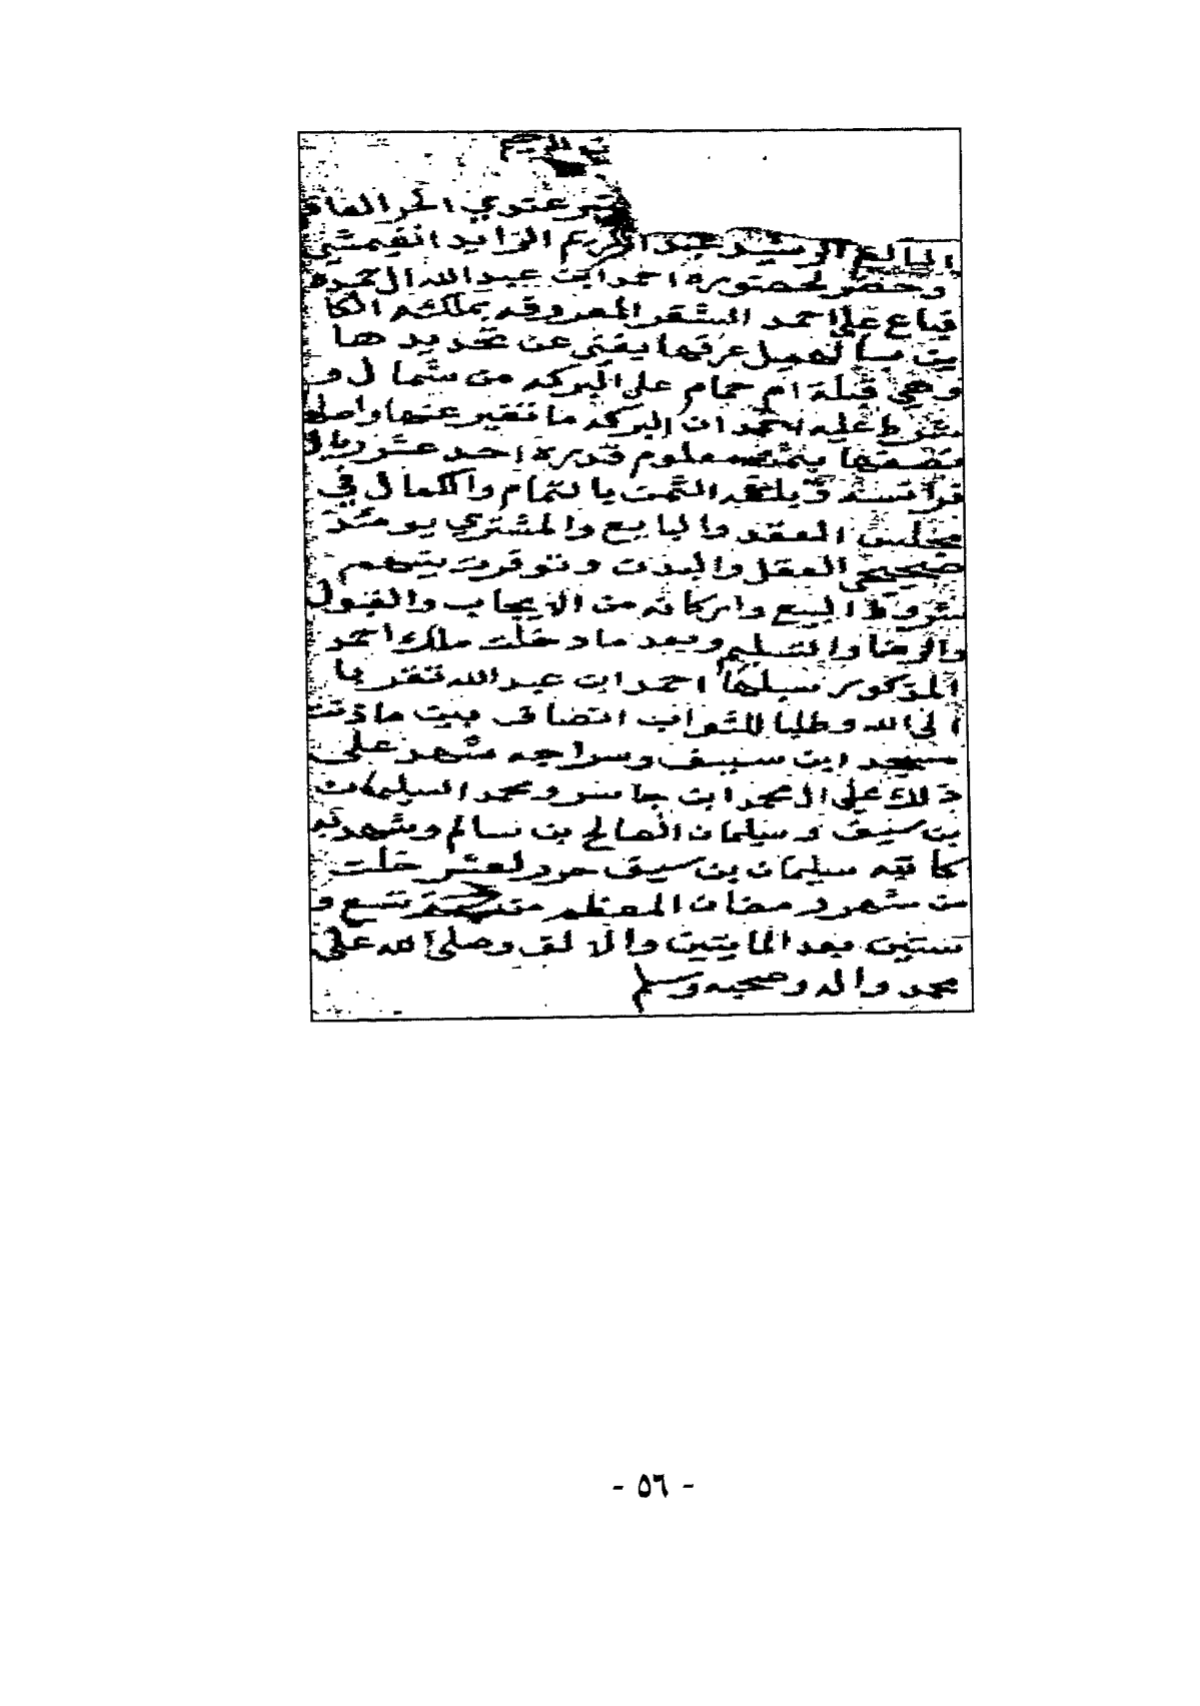 الرحيم
عندي الحر العاقل
البالغ الرشيد عبد الكريم الزايد
وحضر لحضوره احمد ابن عبدالله ال حمد
فباع علي احمد الشقر المعروفه بملكه الكا
عرفها يغني عن تحديدها
وهي قبلة ام حمام علي البركه من شمال و
شرط عليه احمد ان البركه ما تغير عنها واصله
بثمن معلوم قدره احد عشر ريال
فرانسه الثمن بالتمام والكمال في
مجلس العقد والبايع والمشتري يومئذ
صحيحي العقل والبدن وتوفرت بينهم
شروط البيع واركانه من الايجاب والقبول
والرضا والتسليم وبعد ما دخلت ملك احمد
المذكور سبلها احمد ابن عبدالله تقربا
الي الله وطلبا للثواب
مسجد ابن سيف وسراجه شهد علي
ذلك علي ال محمد ابن جاسر ومحمد السليمان
بن سيف و سليمان الصالح بن سالم وشهد به
كاتبه سليمان بن سيف حرر لعشر خلت
من شهر رمضان المعظم تسع و
ستين بعد المايتين والالف وصلى الله على
محمد واله وصحبه وسلم
- ٥٦ -